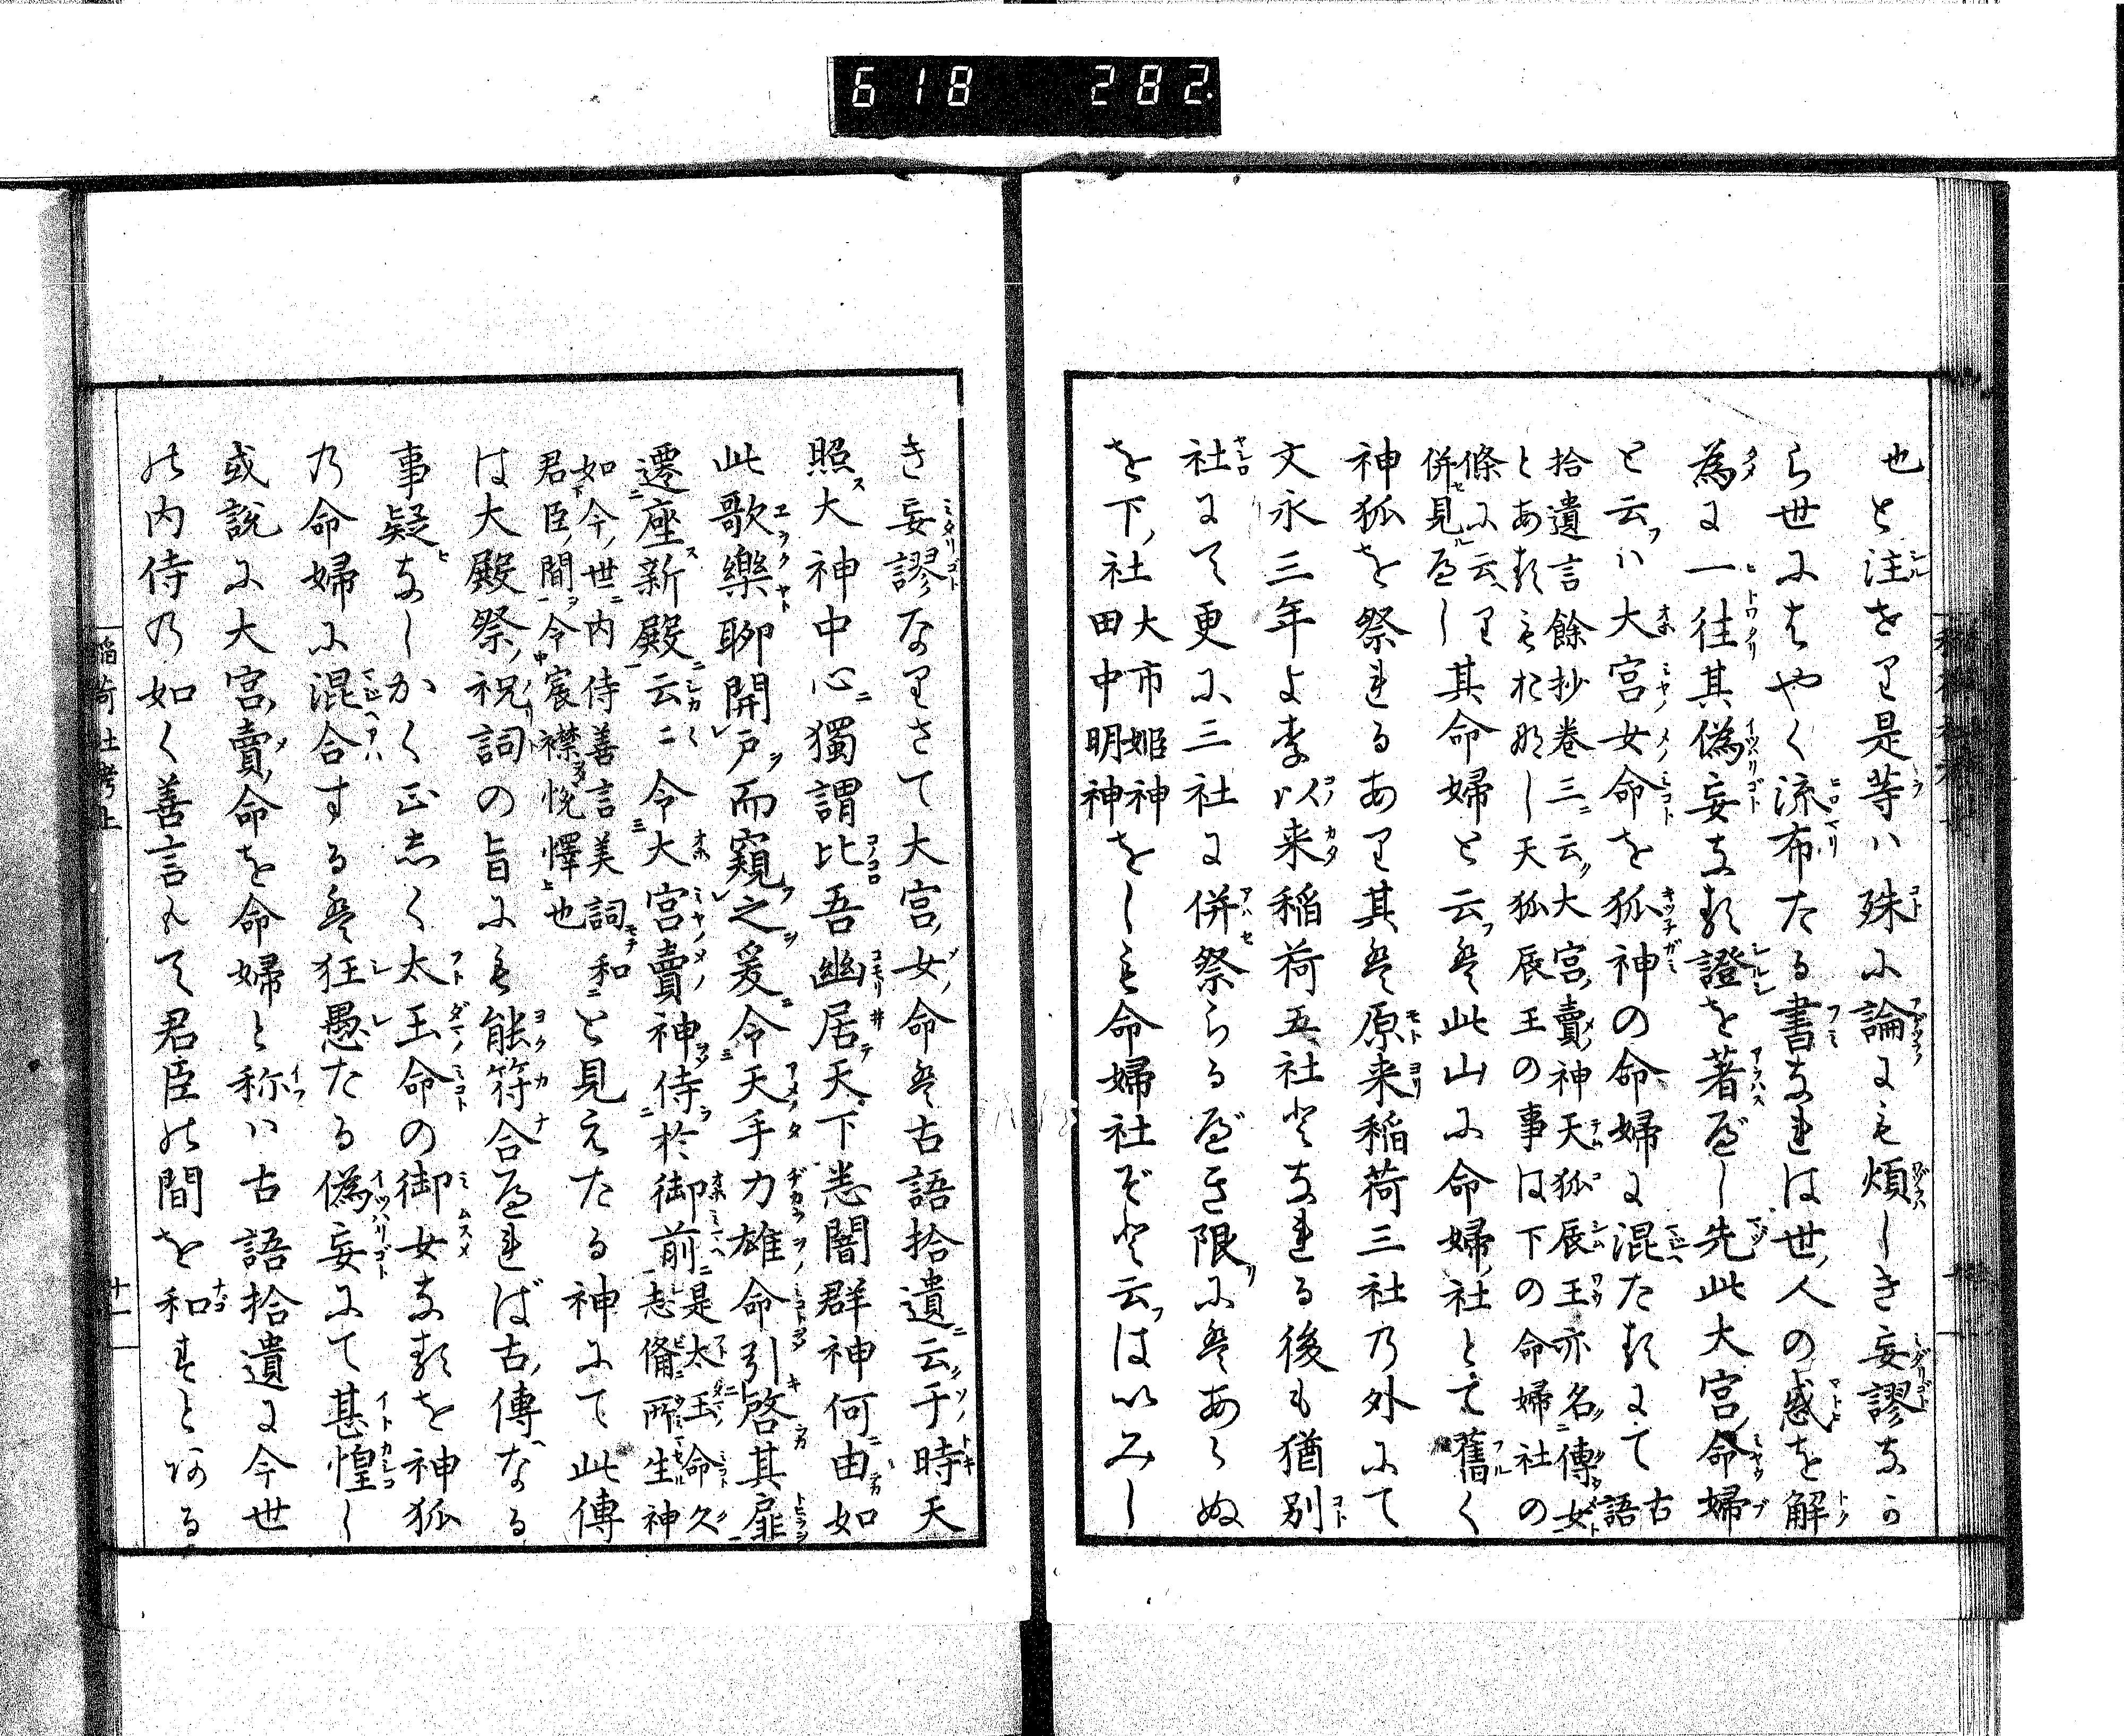 618 282.
也と注せり是等ハ殊に論にも煩しき妄謬なか
ら世にはやく流布たる書なれは世人の惑を解
為に一往其偽妄なる證を著べし先此大宮命婦
と云ハ大宮女命を狐神の命婦に混たるにて古語
拾遺言餘抄巻三云大宮賣神天狐辰王亦名傳女
とあるもおなし天狐辰王の事は下の命婦社の
條に云り
併見べし其命婦と云は此山に命婦社とて舊く
神狐を祭れるあり其は原来稲荷三社乃外にて
文永三年よ李以来稲荷五社となれる後も猶別
社にて更に三社に併祭らるべき限にはあらぬ
を下社大市姫神
田中明神神をしも命婦社ぞと云はいみし
き妄謬なりさて大宮女命は古語拾遺云于時天
照大神中心獨謂比吾幽居天下悉闇群神何由如
此歌樂聊開戸而窺之爰令天手力雄命引啓其扉
遷座新殿云〻令大宮賣神侍於御前是太玉命久
志備所生神
如今世内侍善言美詞和
君臣間令宸襟悦懌也と見えたる神にて此傳
は大殿祭祝詞の旨にも能符合べれば古傳なる
事疑なしかく正しく太玉命の御女なるを神狐
乃命婦に混合する は狂愚たる偽妄にて甚惶し
或説に大宮賣命を命婦と称ハ古語拾遺に今世
の内侍乃如く善言もて君臣の間を和すとある
稲荷社考上
十一